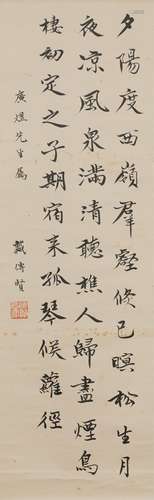 夕陽度西嶺羣壑倏已暝松生月
夜凉風泉滿清聽樵人歸盡煙鳥
棲初定之子期宿来孤琴候蘿徑
廣煜先生屬
戴傳賢